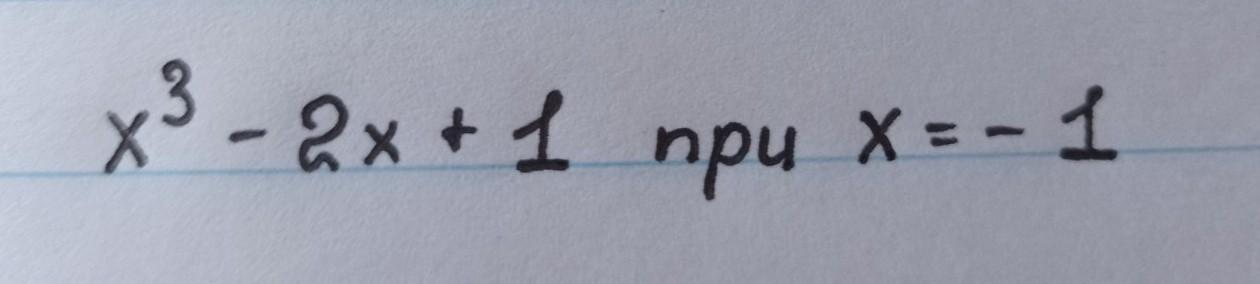 x³ - 2x + 1 при x = - 1